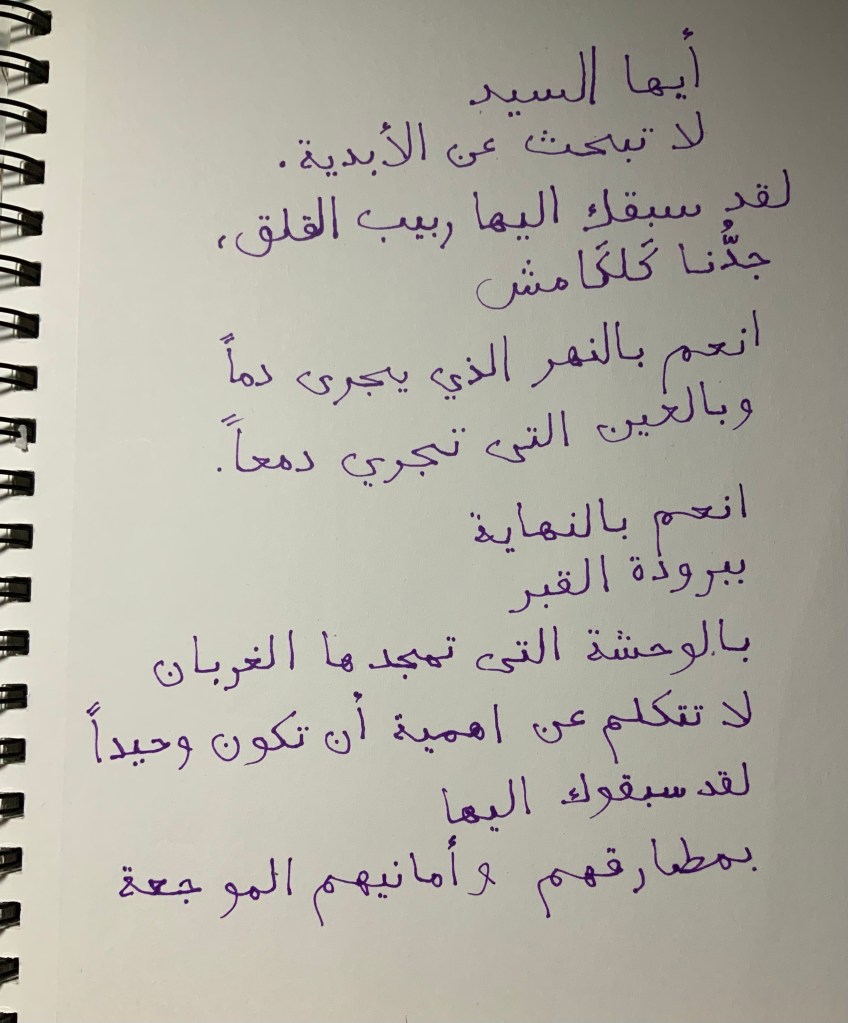 أيها السيد
لا تبحث عن الأبدية.
لقد سبقك اليها ربيب القلق،
جدُّنا كَلكَامش
انعم بالنهر الذي يجرى دماً
وبالعين التى تجري دمعاً.
انعم بالنهاية
ببروذة القبر
بالوحشة التى تمجدها الغربان
لا تتكلم عن اهمية أن تكون وحيداً
لقد سبقوك اليها
بمطارقهم وأمانيهم الموجعة